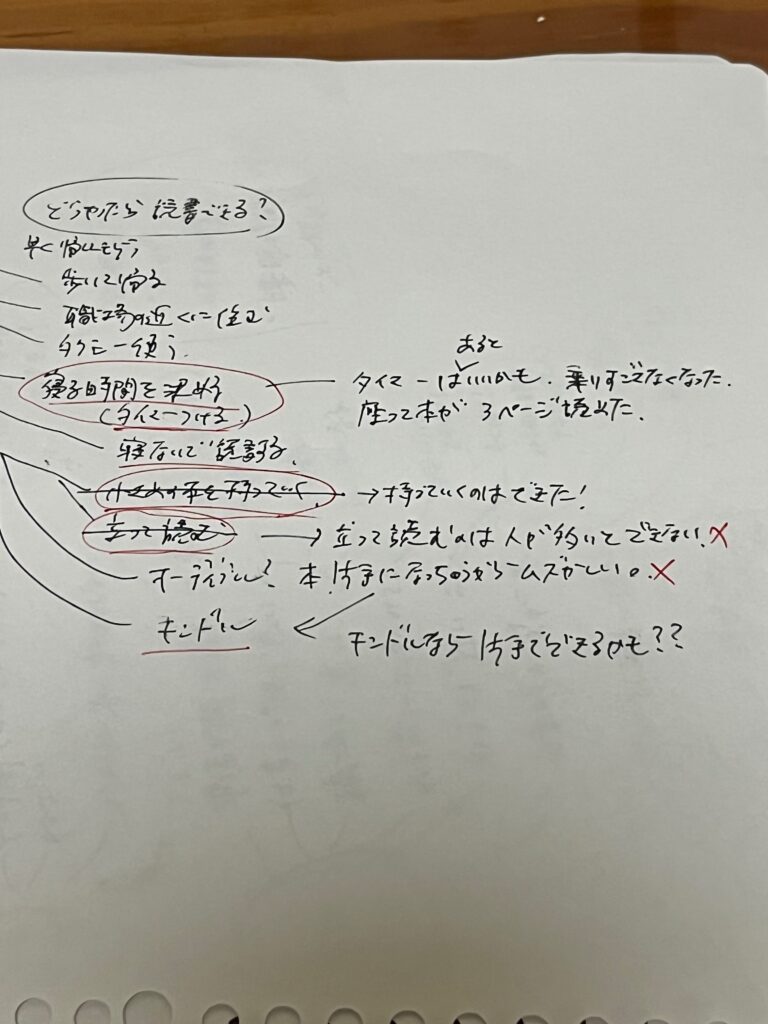 どうやったら読書できる?
早く帰れそう
歩いて帰る
職場の近くに住む
タクシー使う
寝る時間を決める
(タイマーつける)
あると
タイマーはいいかも. 乗りすごさなくなった.
座って本が3ページ読めた.
寝ないで読書する.
本を持っていく
→持っていくのはできた!
立って読む
→立って読むのは人が多いとできない.×
オーディブル? 本.片手になっちゃうからムズかしい。×
キンドル
キンドルなら片手でできるかも??